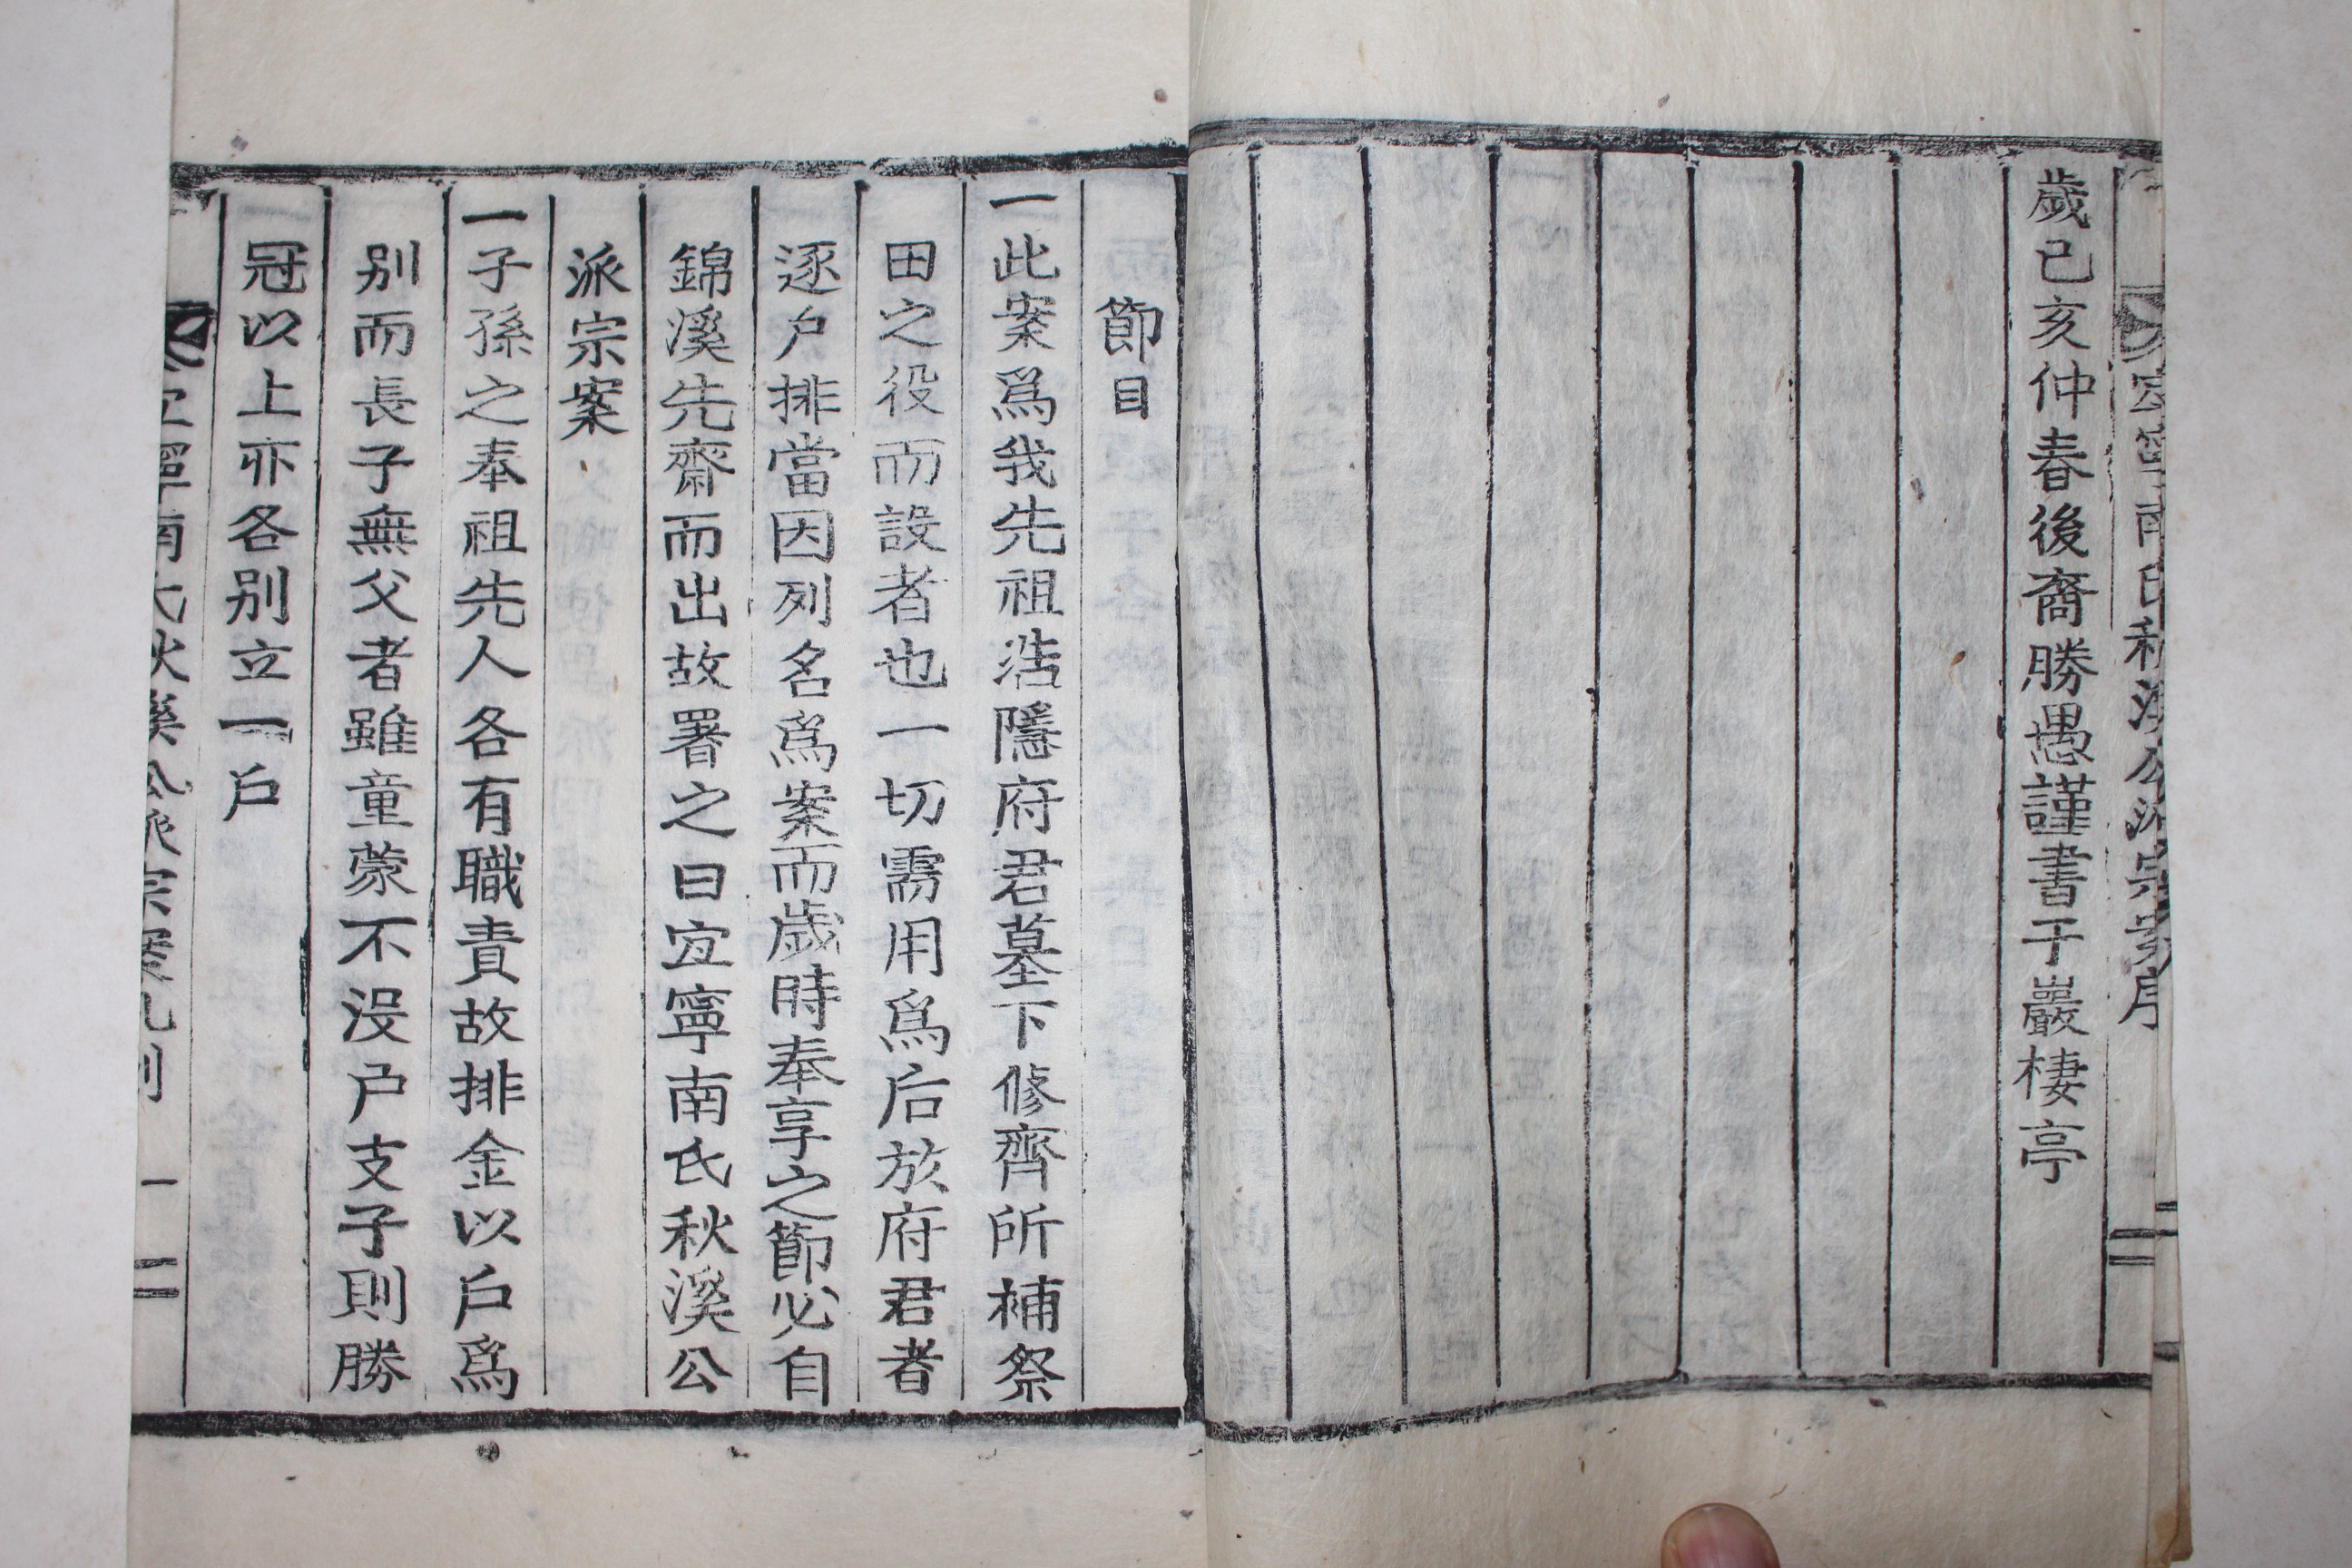 歲己亥仲春後裔勝愚謹書于巖棲亭
節目
一此案爲我先祖浩隱府君墓下修齊所補祭
田之役而設者也一切需用爲后於府君者
逐户排當因列名爲案而歲時奉享之節必自
錦溪先齋而出故署之曰宜寧南氏秋溪公
派宗案
一子孫之奉祖先人各有職責故排金以戶爲
别而長子無父者雖童蒙不没戶支子則勝
冠以上亦各别立一戶